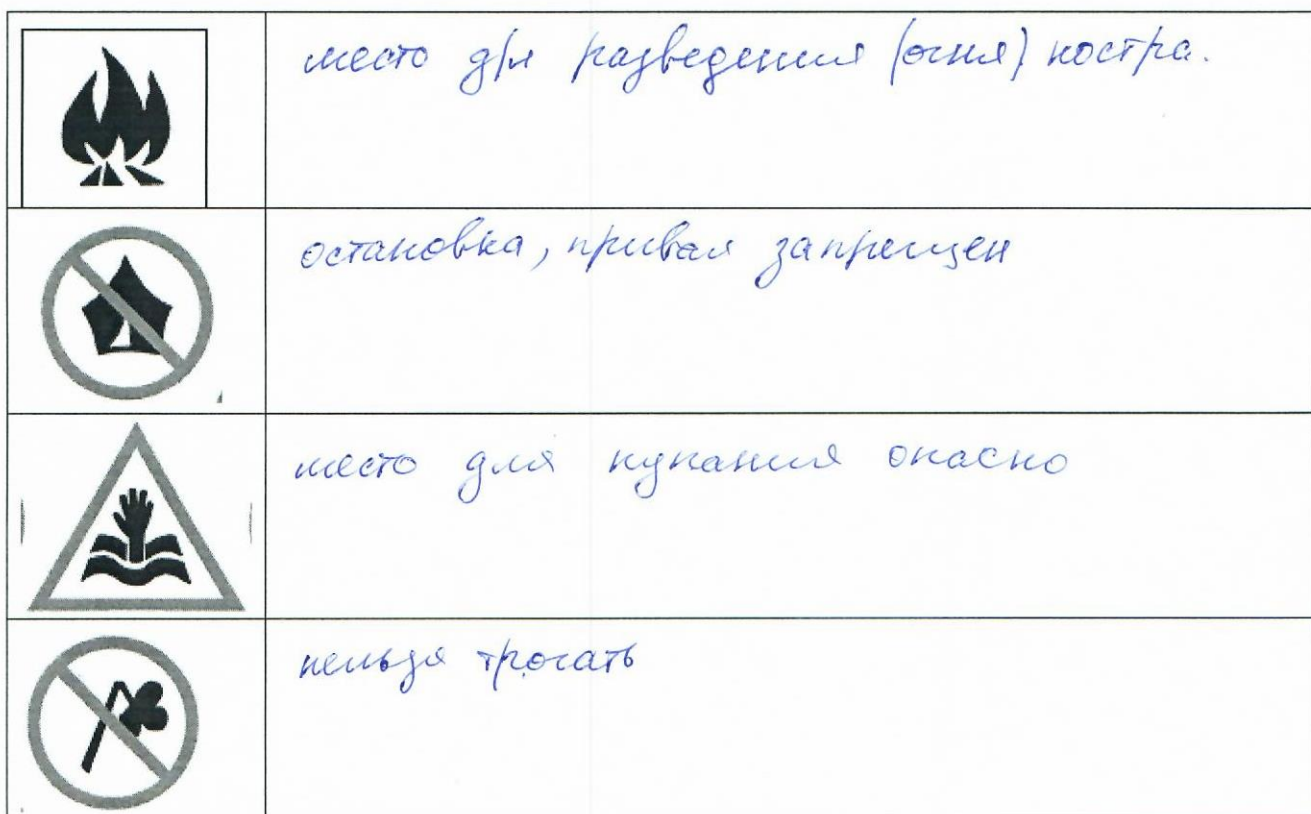 место для разведения (огня) костра.
остановка, привал запрещен
место для купания опасно
нельзя трогать